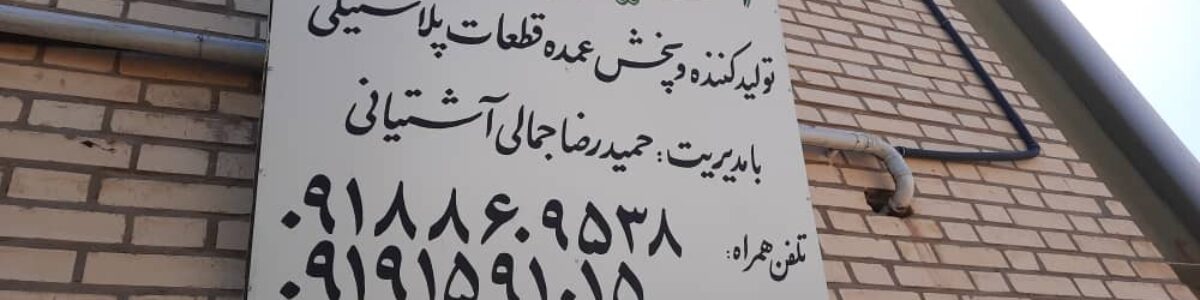 تولید کننده و پخش عمده قطعات پلاستیکی
با مدیریت: حمیدرضا جمالی آشتیانی
تلفن همراه: ۰۹۱۸۸۶۰۹۵۳۸
۰۹۱۹۱۵۹۱۰۱۵